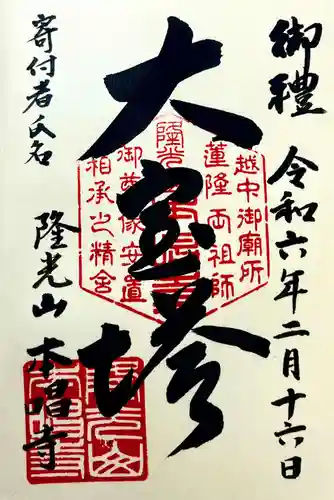 御禮
令和六年二月十六日
大宝塔
越中御廟所
蓮隆両祖師
隆光山
御尊像安置
相承之精舎
寄付者氏名
隆光山
本唱寺